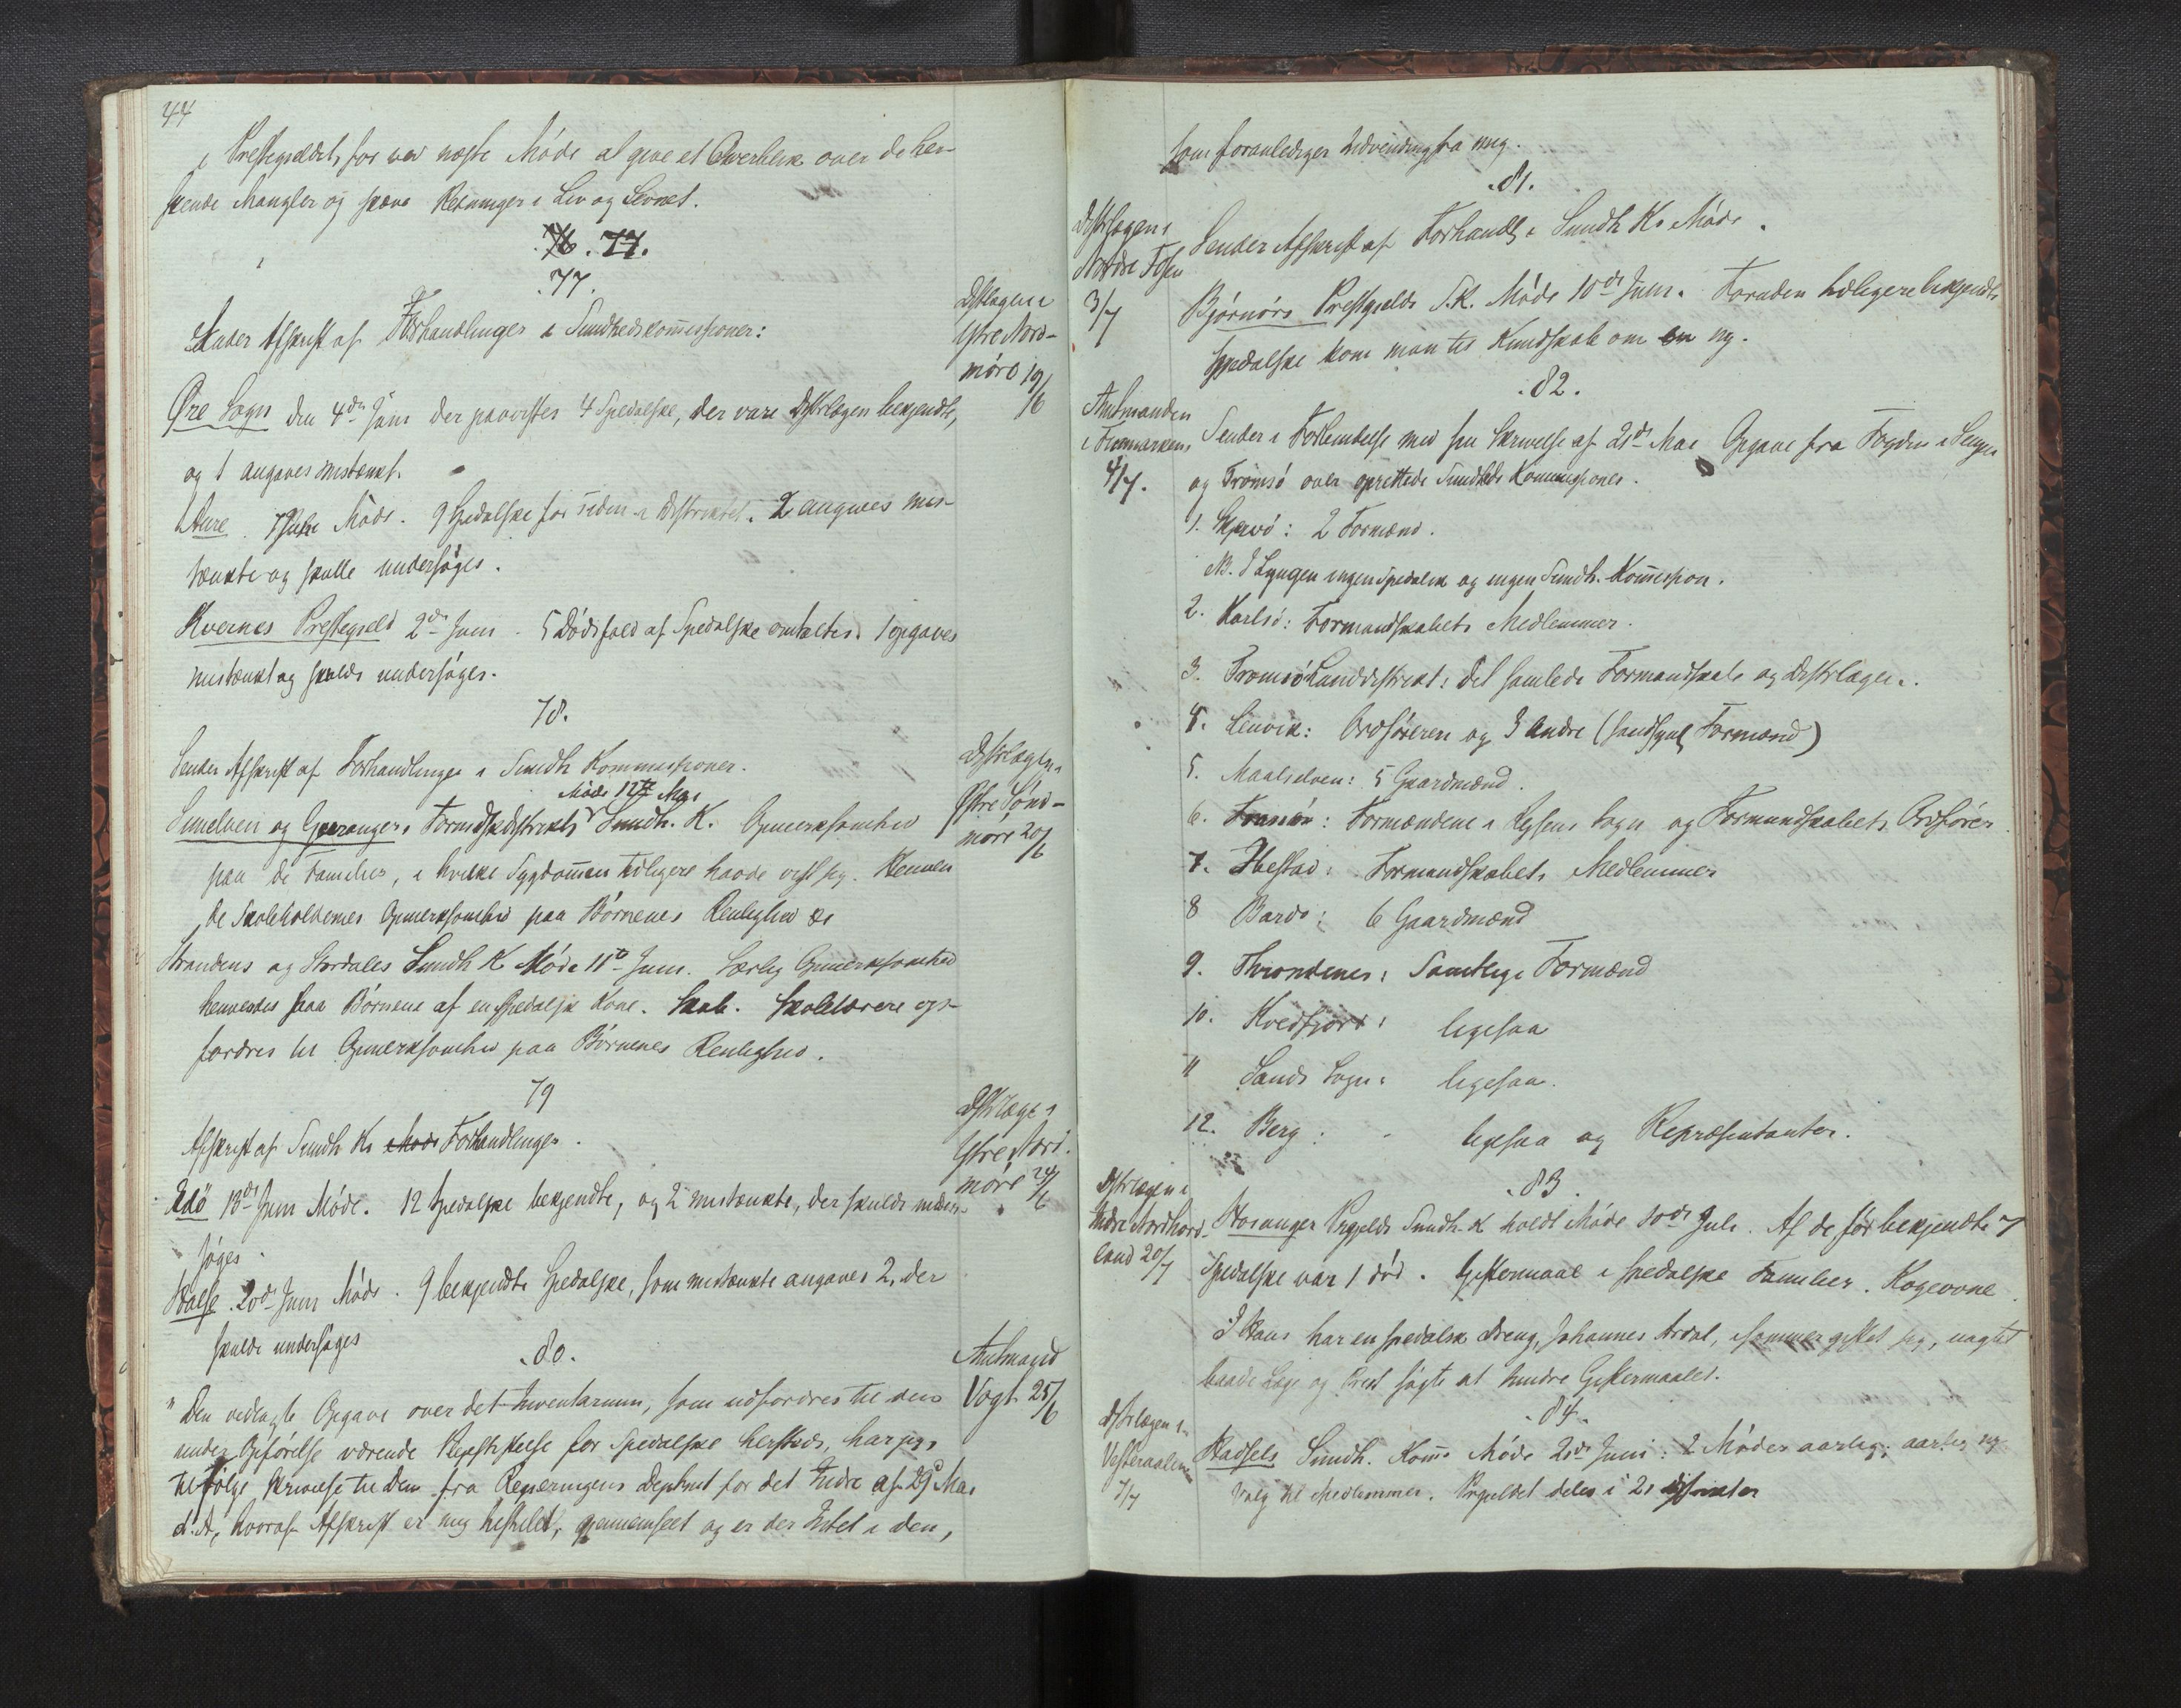 44
i Prestegjeldet, for ved næste Møde at give et Overblik over de her-
skende Mangler og skjæve Retninger i Liv og Levnet.
76. 77.
77.
Distrlægen i
Ytre Nord-
møre 19/6
Sender Afskrift af Forhandlinger i Sundhedskommissioner:
Øre Sogn den 4de Juni der paavistes 4 Spedalske, der vare Distrlægen bekjendte,
og 1 angaves mistænkt.
Aure. Møde. 9 Spedalske før siden i Distriktet. 2 angives mis-
tænkte og skulle undersøges.
Kvernes Prestegjeld 2de Juni. 5 Dødsfald af Spedalske omtaltes. 1 opgaves
mistænkt og skulde undersøges.
78.
Distrlægen i
Østre Sønd-
møre 20/6
Sender Afskrift af Forhandlinger i Sundh Kommissioner.
Møde 12te Mai
Sunelven og Geirangers Formdskdistrikts Sundh. K. Opmerksomhed
paa de Familier, i hvilke Sygdommen tidligere havde vist sig. Henven
de Skoleholdernes Opmerksomhed paa Børnenes Renlighed &c
Strandens og Stordales Sundh K Møde 11te Juni. Særlig Opmerksomhed
henvendes paa Børnene af en spedalsk Kone. Skab. Skolelærere op-
fordres til Opmerksomhed paa Børnenes Renlighed.
79
Distrlægen i
Ytre Nord-
møre 24/6
Afskrift af Sundh Ks Møde Forhandlinger.
Edö 13de Juni Møde. 12 Spedalske bekjendte, og 2 mistænkte, der skulde under-
søges.
Halse. 20de Juni Møde. 9 bekjendte Spedalske, som mistænkte angaves 2, der
skulde undersøges
80.
Amtmand
Vogt 25/6
"Den vedlagte Opgave over det Inventarium, som udfordres til den
under Opførelse værende Pleiestiftelse for Spedalske hersteds, har jeg
tilfølge Skrivelse til Dem fra Regjeringens Deptmt for det Indre af 29 Mai
d: A, hvoraf Afskrift er mig tilstillet, gjennemseet og er der Intet i den,
som foranlediger Indvending fra mig.
81.
Distrlægen i
Nordre Fosen
3/7
Sender Afskrift af Forhandl. i Sundh Ks Møde.
Bjørnørs Prestgjelds S.K. Møde 10de Juni. Foruden tidligere bekjendte
Spedalske kom man til Kundskab om en ny.
82.
Amtmanden
i Finmarken,
4/7.
Sender i Forbindelse med sin Skrivelse af 21de Mai Opgave fra Fogden i Senjen
og Tromsø over oprettede Sundheds Kommissioner.
1. Skjervö: 2 Formænd.
NB. I Lyngen ingen Spedalsk og ingen Sundh. Kommission.
2. Karlsö: Formandskabets Medlemmer.
3. Tromsö Landdistrikt: Det samlede Formandskab og Distrlægen.
4. Lenvik: Ordføreren og 3 Andre (sandsynl Formænd)
5. Maalselven: 5 Gaardmænd.
6. Tranö: Formændene i Sogn og Formandskabets Ordfører
7. Ibestad: Formandskabets Medlemmer
8 Bardo: 6 Gaardmænd
9. Throndenes: Samtlige Formænd
10. Kvedfjord: ligesaa
11 Sands Sogn: ligesaa.
12. Berg: ligesaa og Repræsentanter.
83.
Distrlægen i
Indre Nordhord-
land 20/7
Hosanger Prgjelds Sundh. K holdt Møde 10de Juli. Af de før bekjendte 7
Spedalske var 1 død. Giftermaal i spedalske Familier. Kogeovne.
I Haus har en spedalsk Dreng, Johannes Ardal, isommer giftet sig, uagtet
baade Læge og Prest søgte at hindre Giftermaalet.
84.
Distrlægen i
Vesteraalen
7/7
Hadsels Sundh. Koms Møde 20de Juni: 2 Møder aarlig; aarlig ny
Valg til Medlemmer. Prgjeldet deles i 21 distrikter